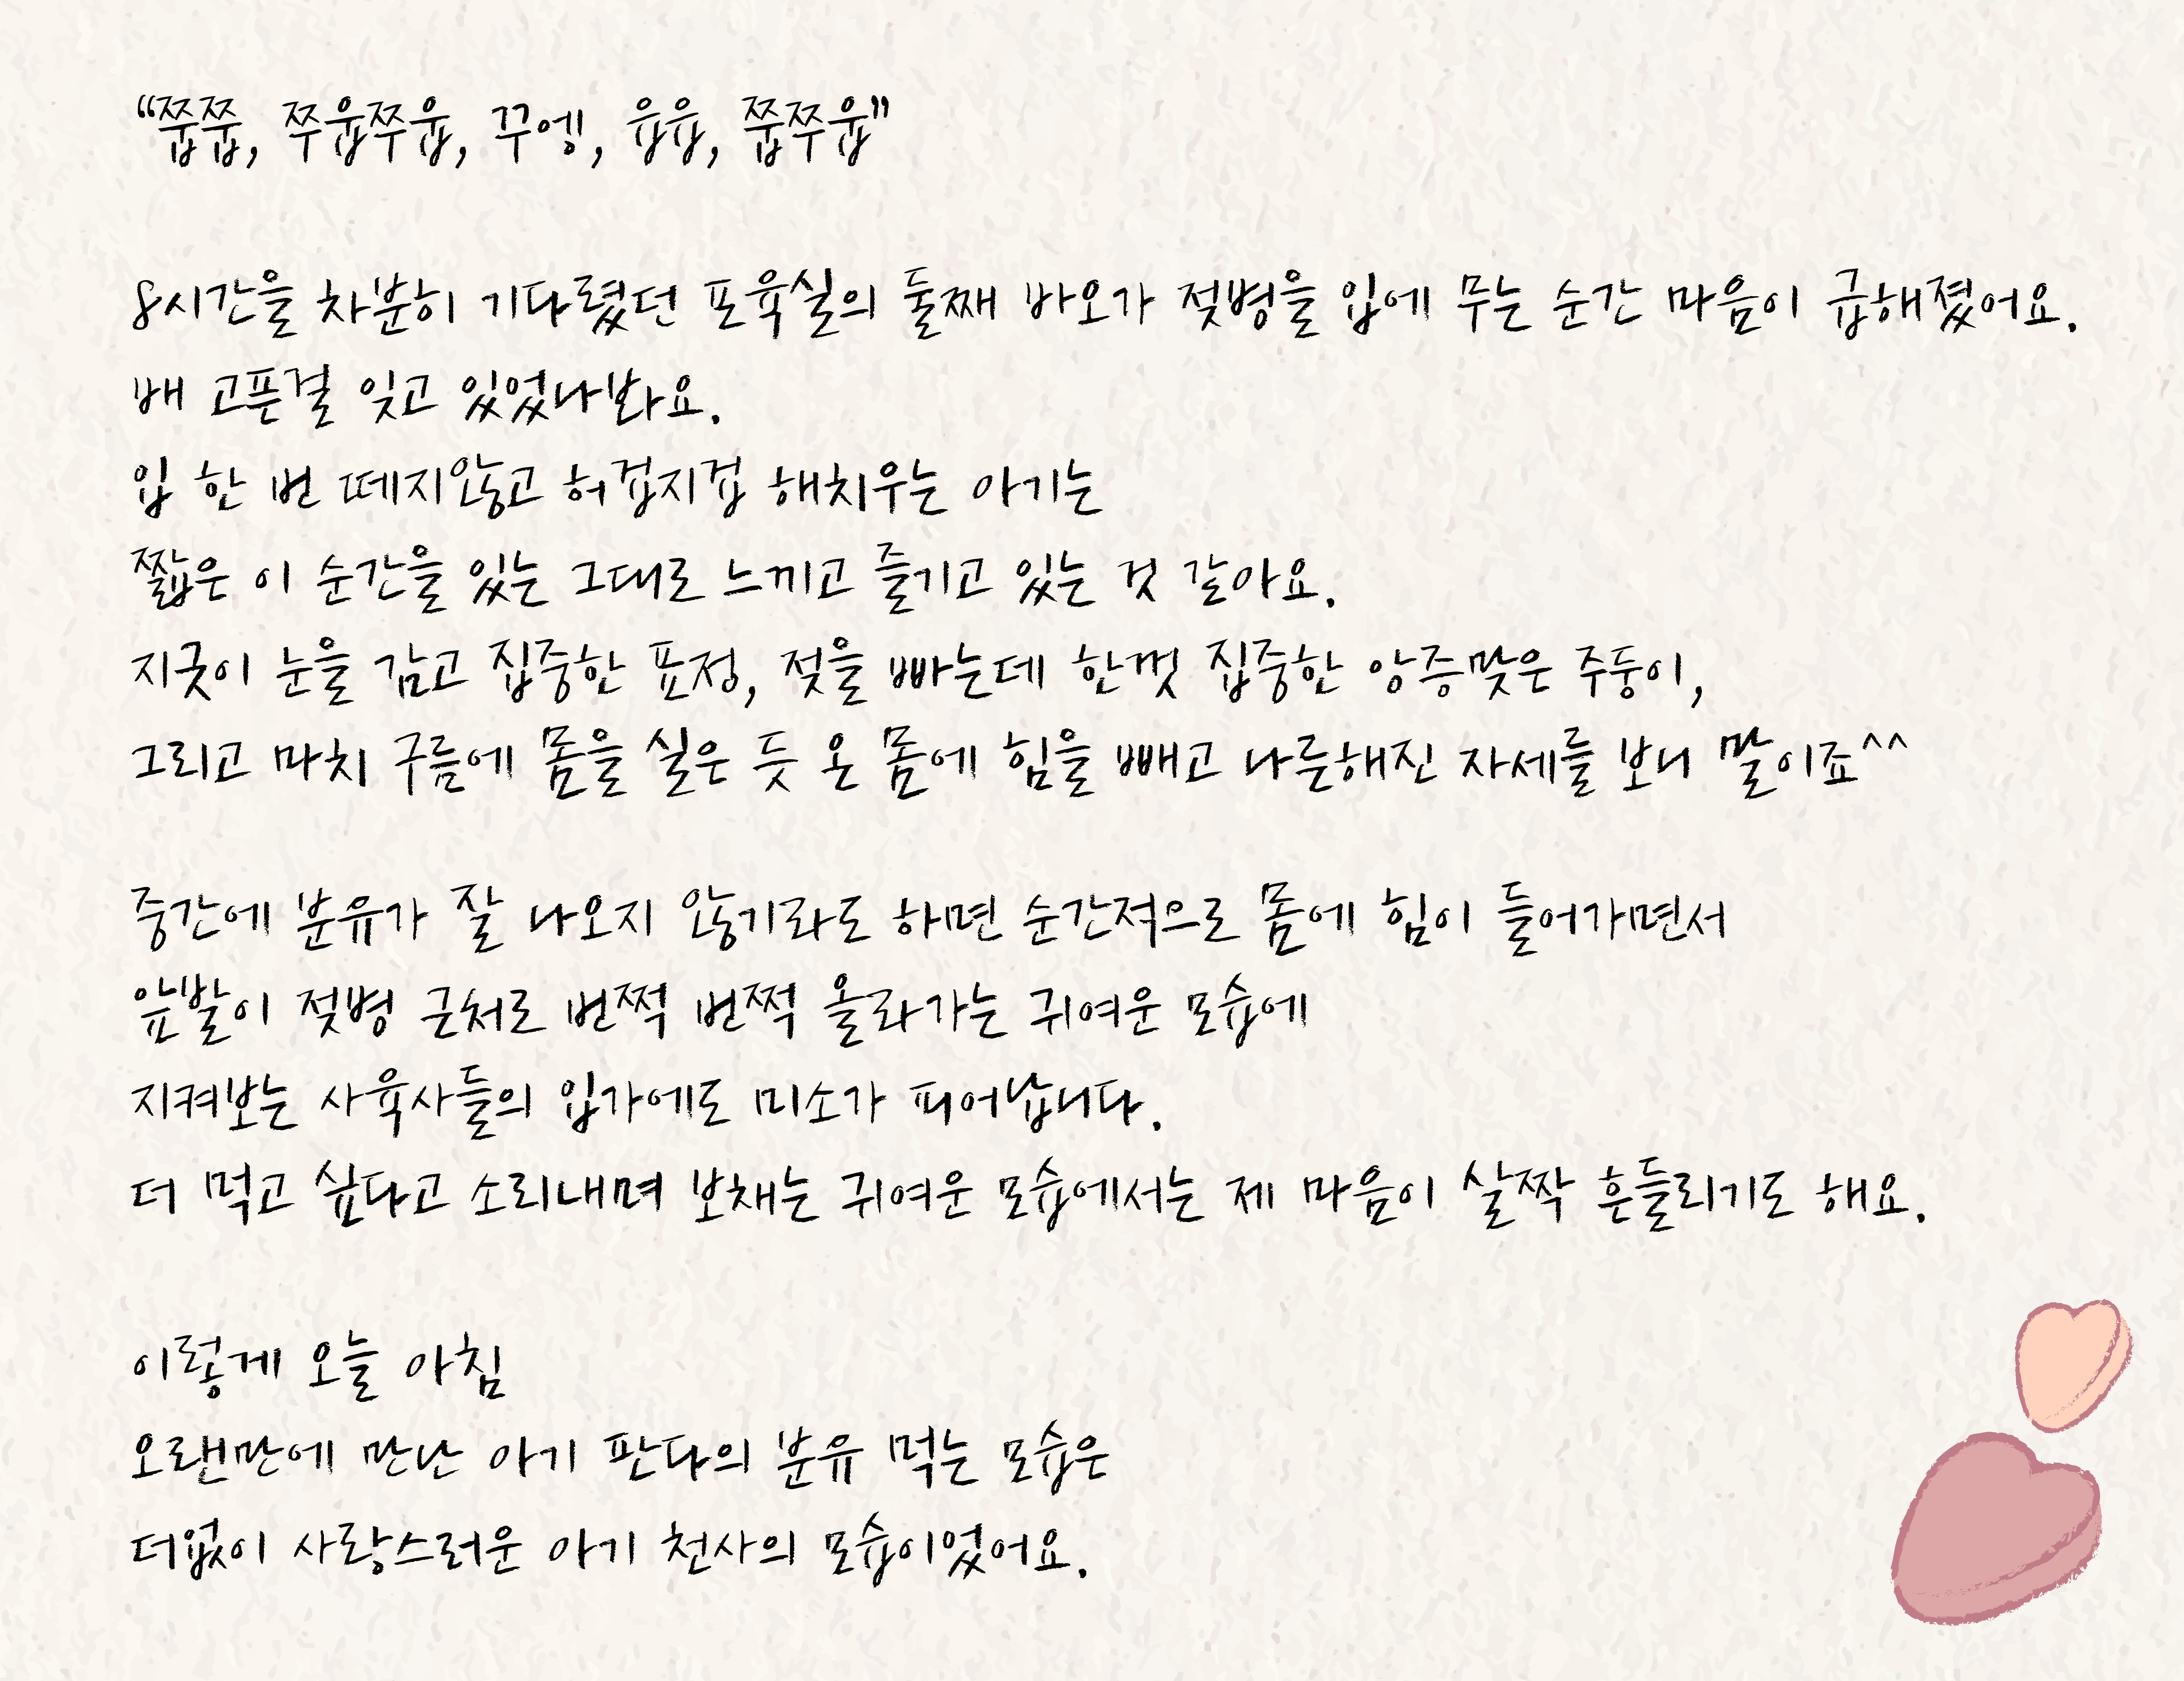 “쭙쭙, 쭈웁쭈웁, 꾸엥, 윰윰, 쭙쭈웁”
8시간을 차분히 기다렸던 포육실의 둘째 바오가 젖병을 입에 무는 순간 마음이 급해졌어요.
배 고픈걸 잊고 있었나봐요.
입 한 번 떼지않고 허겁지겁 해치우는 아기는
짧은 이 순간을 있는 그대로 느끼고 즐기고 있는 것 같아요.
지긋이 눈을 감고 집중한 표정, 젖을 빠는데 한껏 집중한 앙증맞은 주둥이,
그리고 마치 구름에 몸을 실은 듯 온 몸에 힘을 빼고 나른해진 자세를 보니 말이죠^^
중간에 분유가 잘 나오지 않기라도 하면 순간적으로 몸에 힘이 들어가면서
앞발이 젖병 근처로 번쩍 번쩍 올라가는 귀여운 모습에
지켜보는 사육사들의 입가에도 미소가 피어납니다.
더 먹고 싶다고 소리내며 보채는 귀여운 모습에서는 제 마음이 살짝 흔들리기도 해요.
이렇게 오늘 아침
오랜만에 만난 아기 판다의 분유 먹는 모습은
더없이 사랑스러운 아기 천사의 모습이었어요.